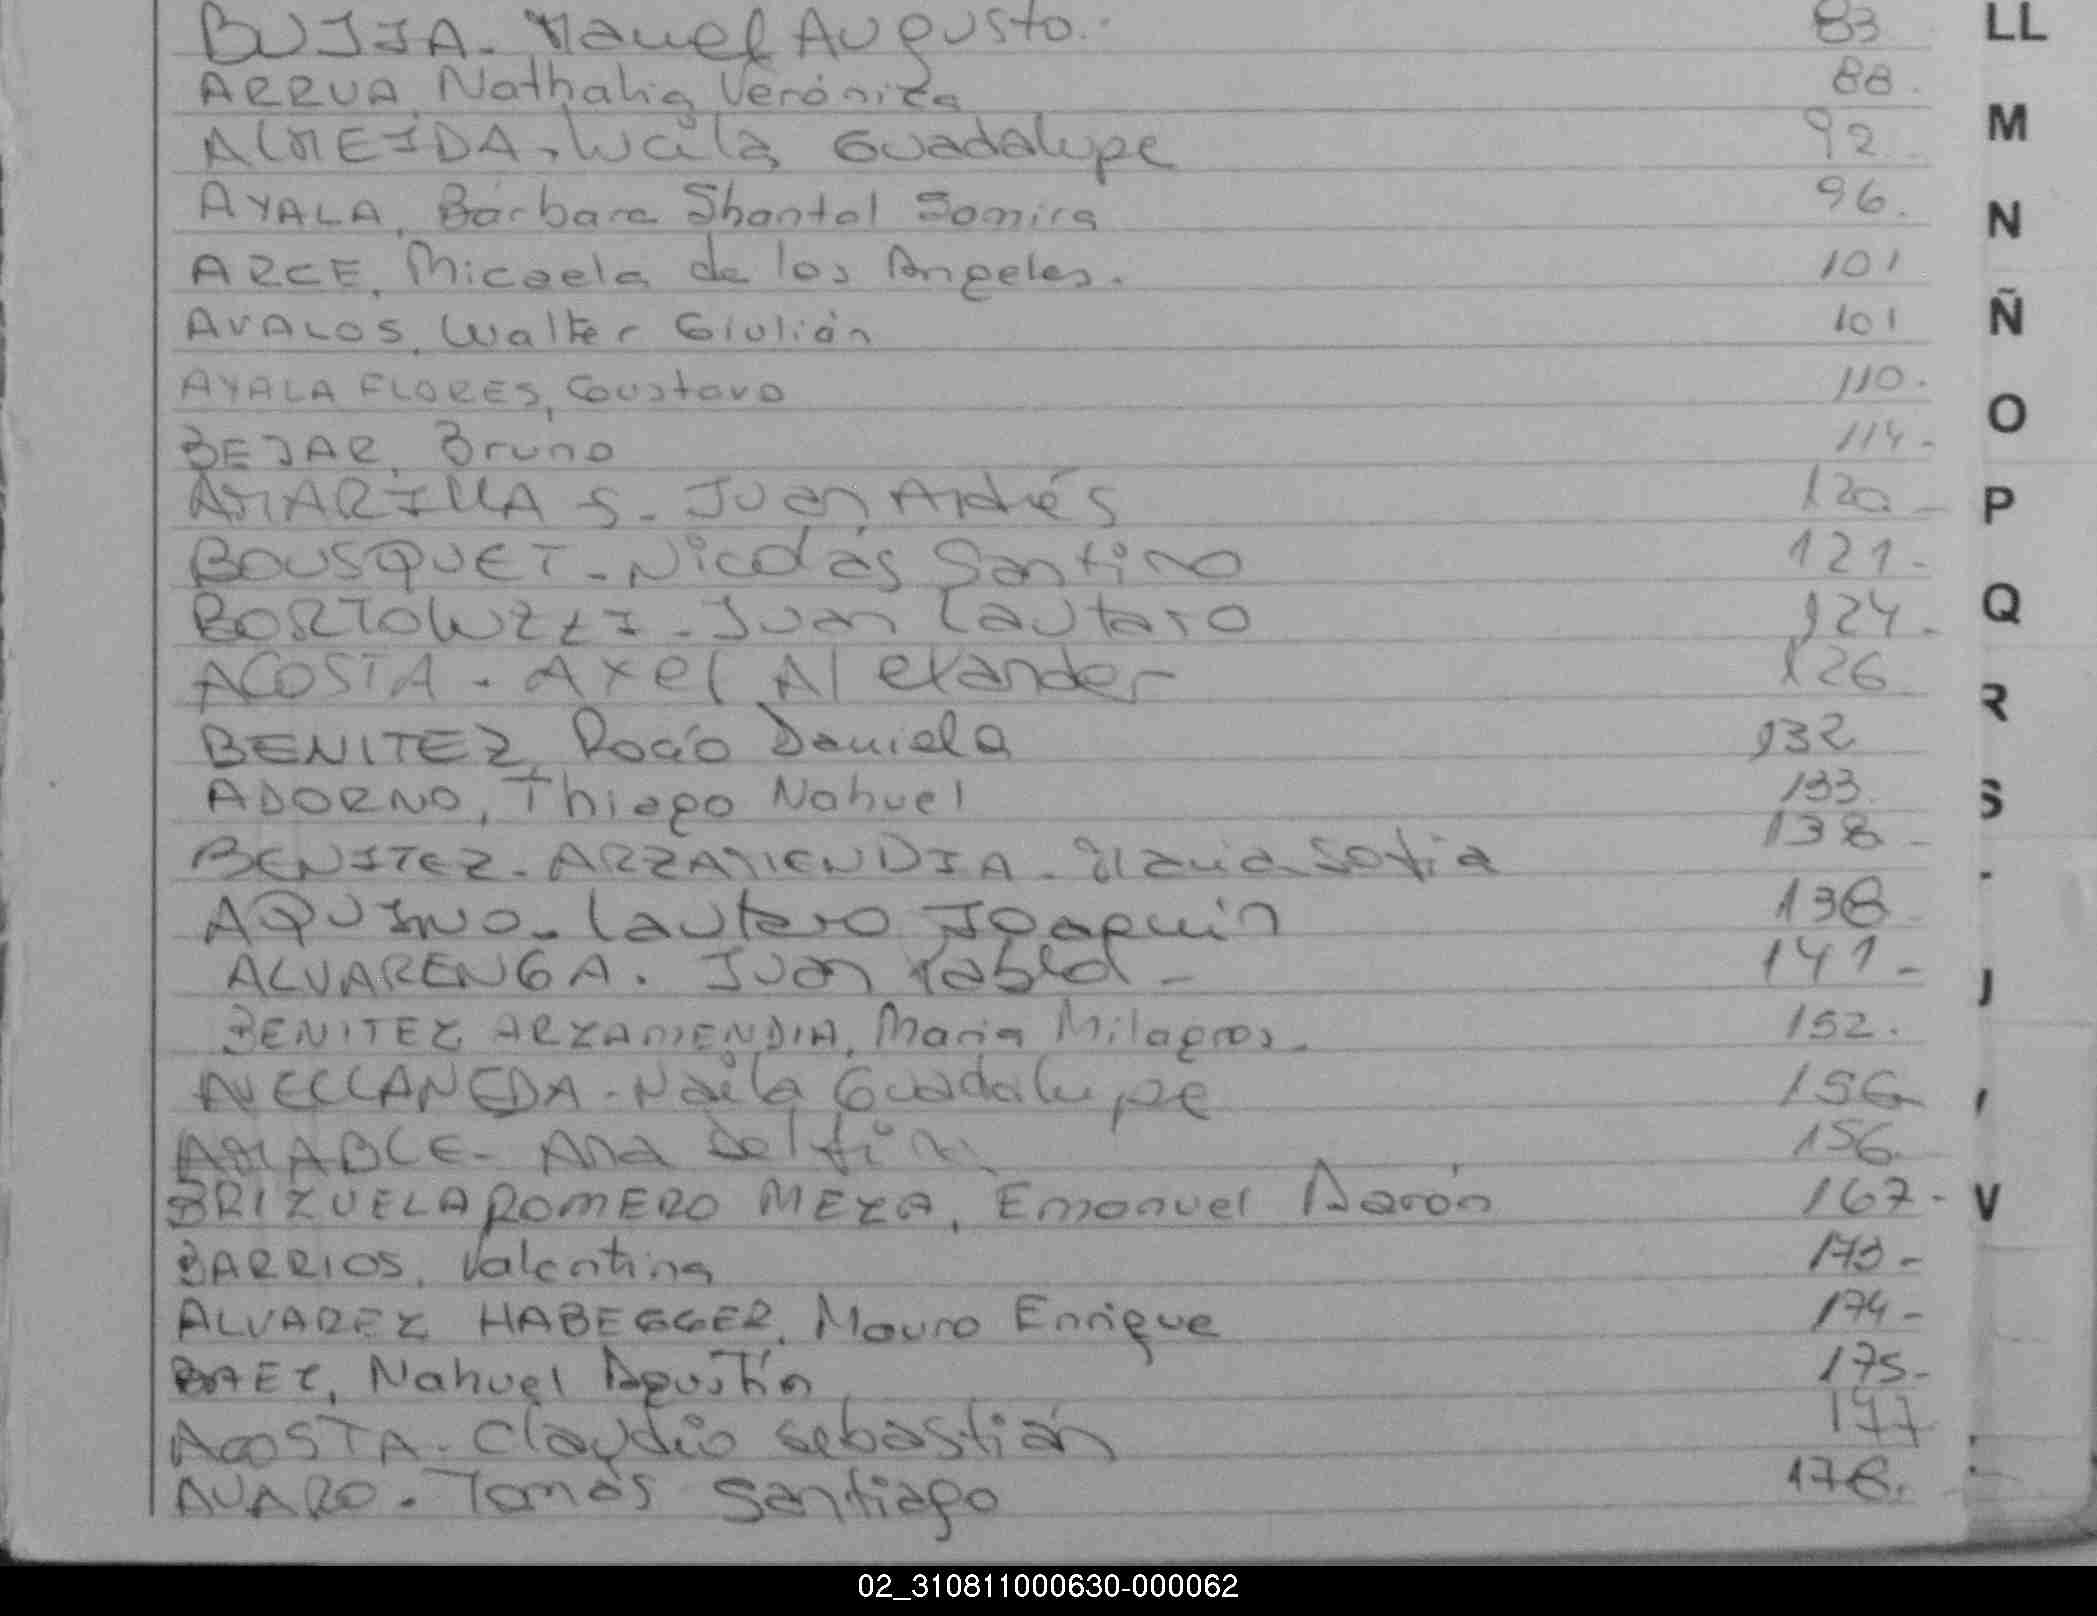 BUJJA. Manuel Augusto. 83
ARRUA, Nathalia Verónica 88.
ALMEIDA. Lucila Guadalupe 92
AYALA, Bárbara Shantal Samira 96.
ARCE, Micaela de los Angeles. 101
AVALOS, Walter Giulián 101
AYALA FLORES, Gustavo 110.
BEJAR, Bruno 114-
AMARILLA S. Juan Andrés 120
BOUSQUET. Nicolás Santino 121-
BORTOLUZZI. Juan Lautaro 124-
ACOSTA. Axel Alexander 126
BENITEZ, Rocío Daniela 132
ADORNO, Thiago Nahuel 133
BENITEZ. ARZAMENDIA. María Sofia 138-
AQUINO. Lautaro Joaquin 138
ALVARENGA. Juan Pablo. 141-
BENITEZ ARZAMENDIA, Maria Milagros. 152.
AVELLANEDA. Naila Guadalupe 156
AMABLE. Ana Delfina 156
BRIZUELA ROMERO MEZA, Emanuel Aarón 167-
BARRIOS, Valentina 173-
ALVAREZ HABEGGER, Mauro Enrique 174-
BAEZ, Nahuel Agustín 175-
ACOSTA. Claudio Sebastián 177
AVARO. Tomás Santiago 178.
LL
M
N
Ñ
O
P
Q
R
S
V
02_310811000630-000062